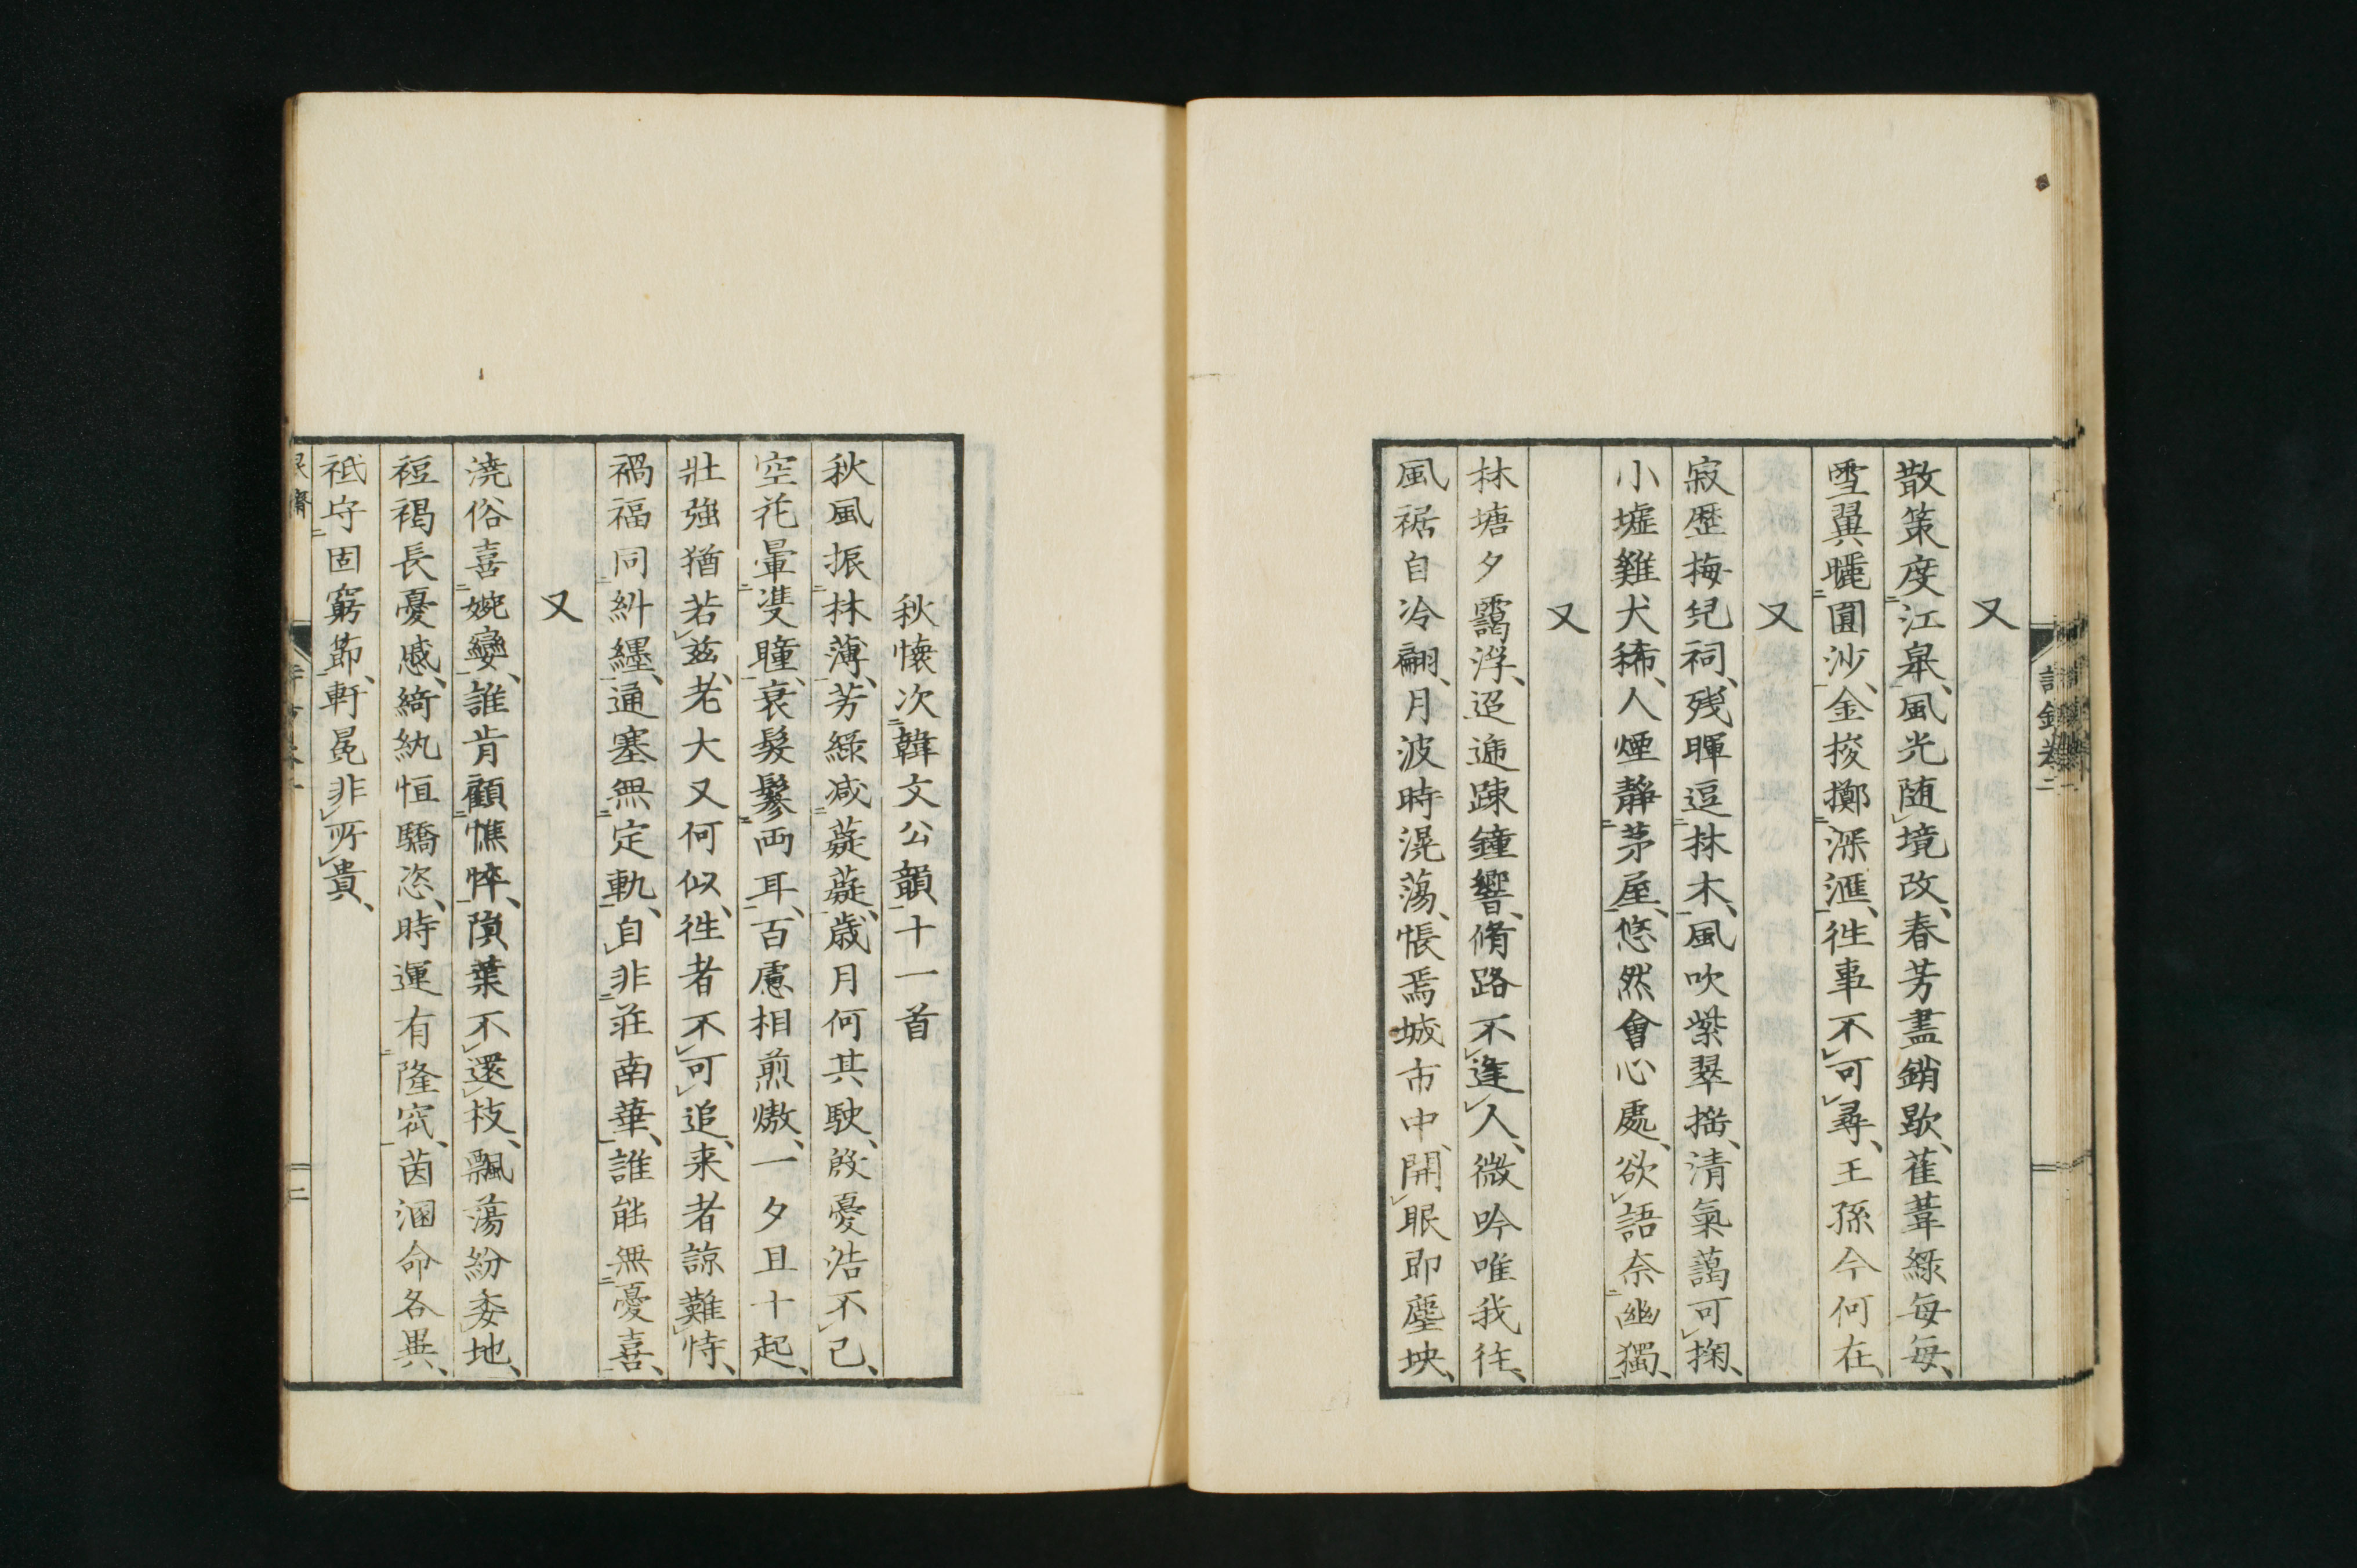 又
散策度江皐、風光随境改、春芳盡銷歇、萑葦綠毎毎、
雪翼曬圓沙、金梭擲深滙、徃事不可尋、王孫今何在、
又
寂歴梅児祠、残暉逗林木、風吹紫翠揺、清氣藹可掬、
小墟雞犬稀、人煙靜茅屋、悠然會心處、欲語奈幽獨、
又
林塘夕靄浮、迢逓踈鐘響、脩路不逢人、微吟唯我徃、
風裾自冷翩、月波時滉蕩、悵焉城市中、開眼即塵坱、
秋懐次韓文公韻十一首
秋風振林薄、芳綠減薿薿、歳月何其駛、殷憂浩不已、
空花暈雙瞳、衰髮鬖両耳、百慮相煎熬、一夕且十起、
壯強猶若茲、老大又何似、徃者不可追、来者諒難恃、
禍福同糾纆、通塞無定軌、自非莊南華、誰能無憂喜、
又
澆俗喜婉孌、誰肯顧憔悴、隕葉不還枝、飄蕩紛委地、
裋褐長憂慼、綺紈恒驕恣、時運有隆窊、茵溷命各異、
祗守固窮節、軒冕非所貴、